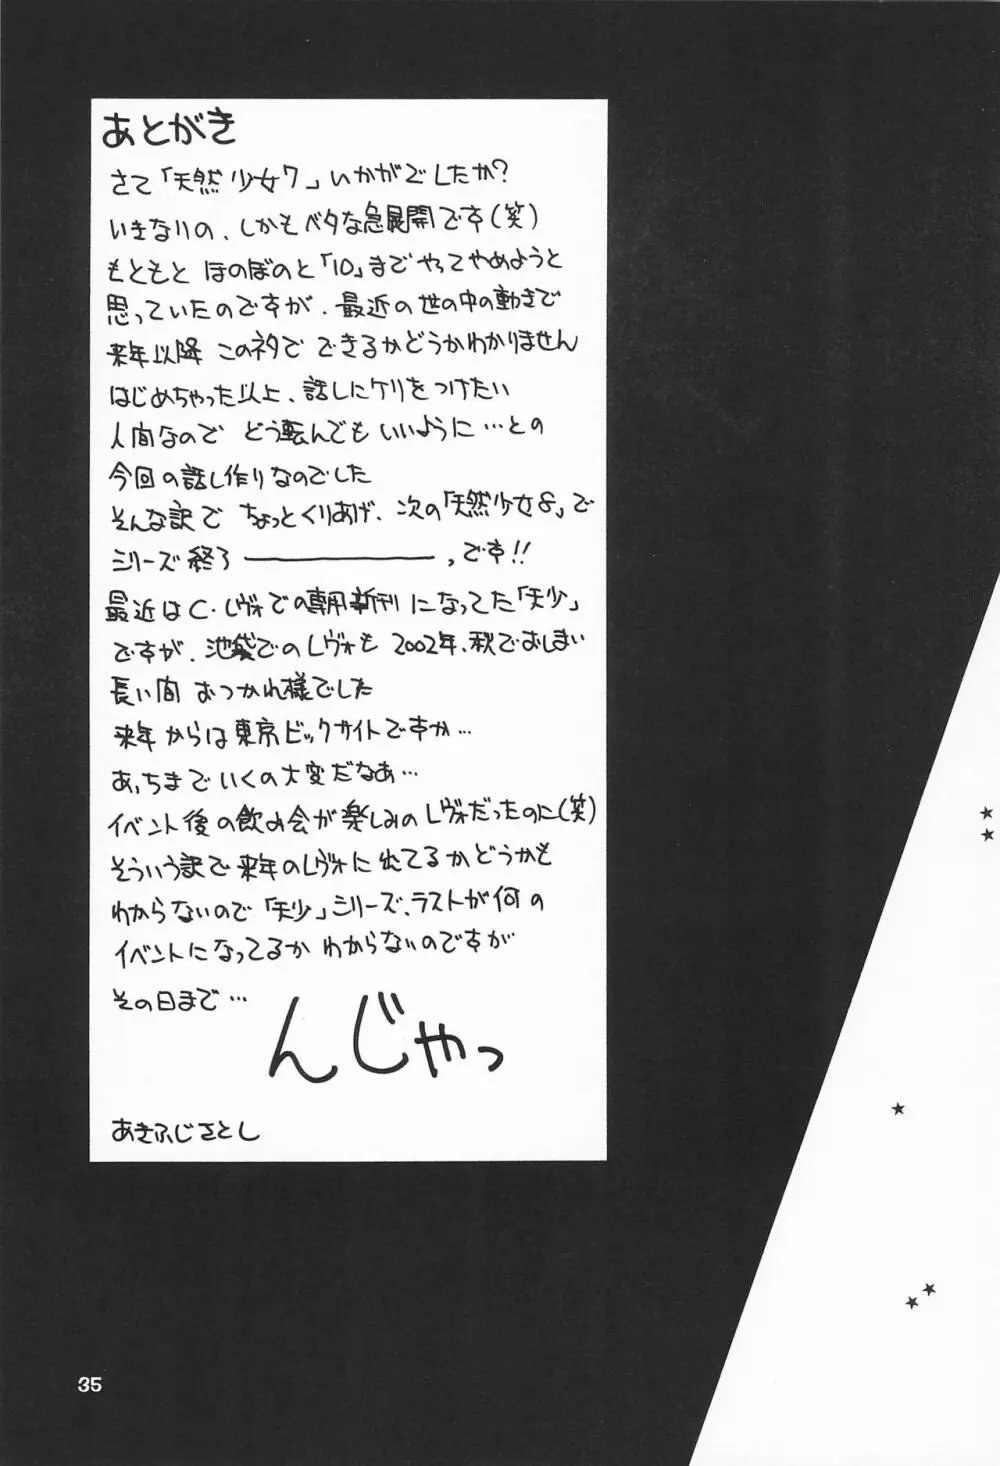 あとがき
さて「天然少女7」いかがでしたか?
いきなりの、しかもベタな急展開です(笑)
もともと ほのぼのと「10」まで やってやめようと
思っていたのですが、最近の世の中の動きで
来年以降 このネタで できるかどうかわかりません
はじめちゃった以上、話しにケリをつけたい
人間なので どう転んでも いいように…との
今回の話し作りなのでした
そんな訳で ちょっとくりあげ、次の「天然少女8」で
シリーズ終了――――っ、です!!
最近はC・レヴォでの専用新刊になってた「天少」
ですが、池袋でのレヴォも 2002年、秋でおしまい
長い間 おつかれ様でした
来年からは東京ビックサイトですか…
あっちまでいくの大変だなあ…
イベント後の飲み会が楽しみのレヴォだったのに(笑)
そういう訳で来年のレヴォに出てるかどうかも
わからないので「天少」シリーズ、ラストが何の
イベントになってるか わからないのですが
その日まで…
んじゃっ
あきふじさとし
35